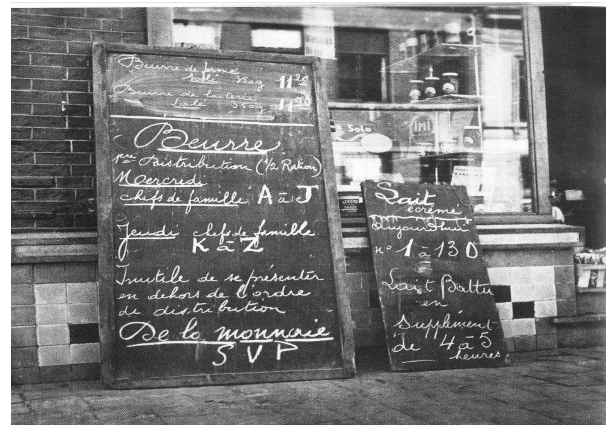 Beurre de ferme
salé 350g 11 20
Beurre de laiterie
salé 350g 11 90
Beurre
1ère Distribution (½ Ration)
Mercredi
chefs de famille A à J
Jeudi chefs de famille
K à Z
Inutile de se présenter
en dehors de l'ordre
de distribution
De la monnaie
SVP
Solo
IMI
Lait
écrémé
aujourd'hui
n° 1 à 130
Lait Battu
en
Supplément
de 4 à 5
heures